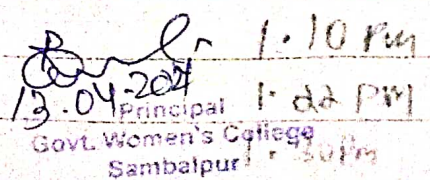 1.10 PM
13.04.2021
1.22 PM
Principal
Govt. Women's College
Sambalpur 1.30 PM